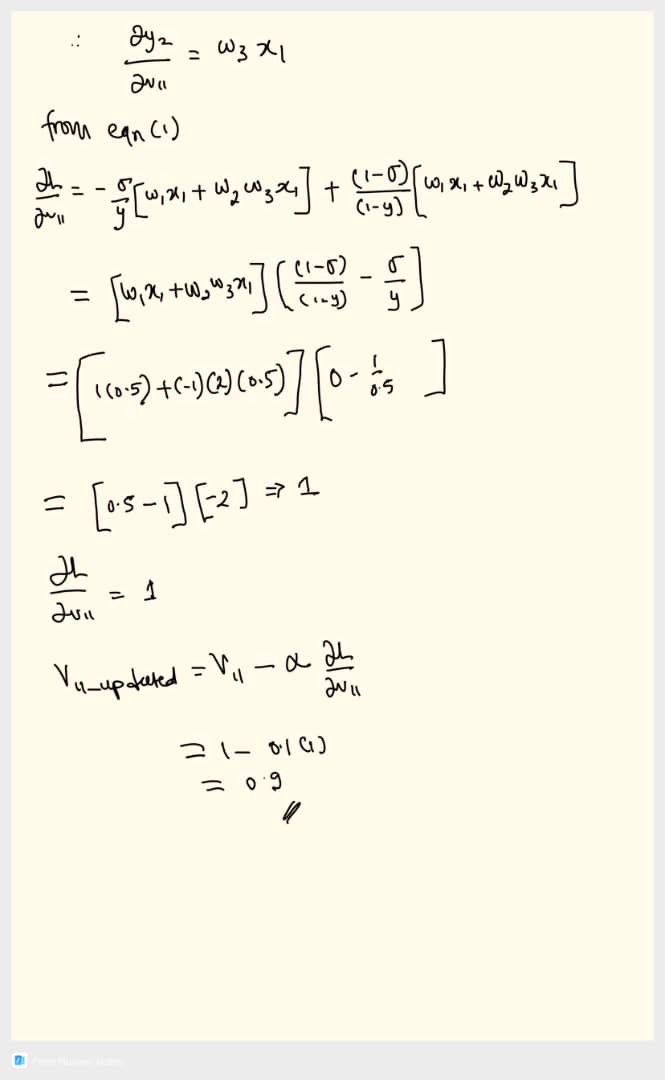 ∴ ∂y₂/∂v₁₁ = w₃ x₁
from eqn (1)
∂L/∂v₁₁ = - σ/y [w₁x₁ + w₂ w₃ x₁] + (1-σ)/(1-y) [w₁ x₁ + w₂ w₃ x₁]
= [w₁x₁ + w₂w₃x₁] ( (1-σ)/(1-y) - σ/y ]
= [1(0.5) + (-1)(2)(0.5)] [0 - 1/0.5 ]
= [0.5 - 1] [-2] ⇒ 1
∂L/∂v₁₁ = 1
V₁₁_updated = V₁₁ - α ∂L/∂v₁₁
= 1 - 0.1 (1)
= 0.9